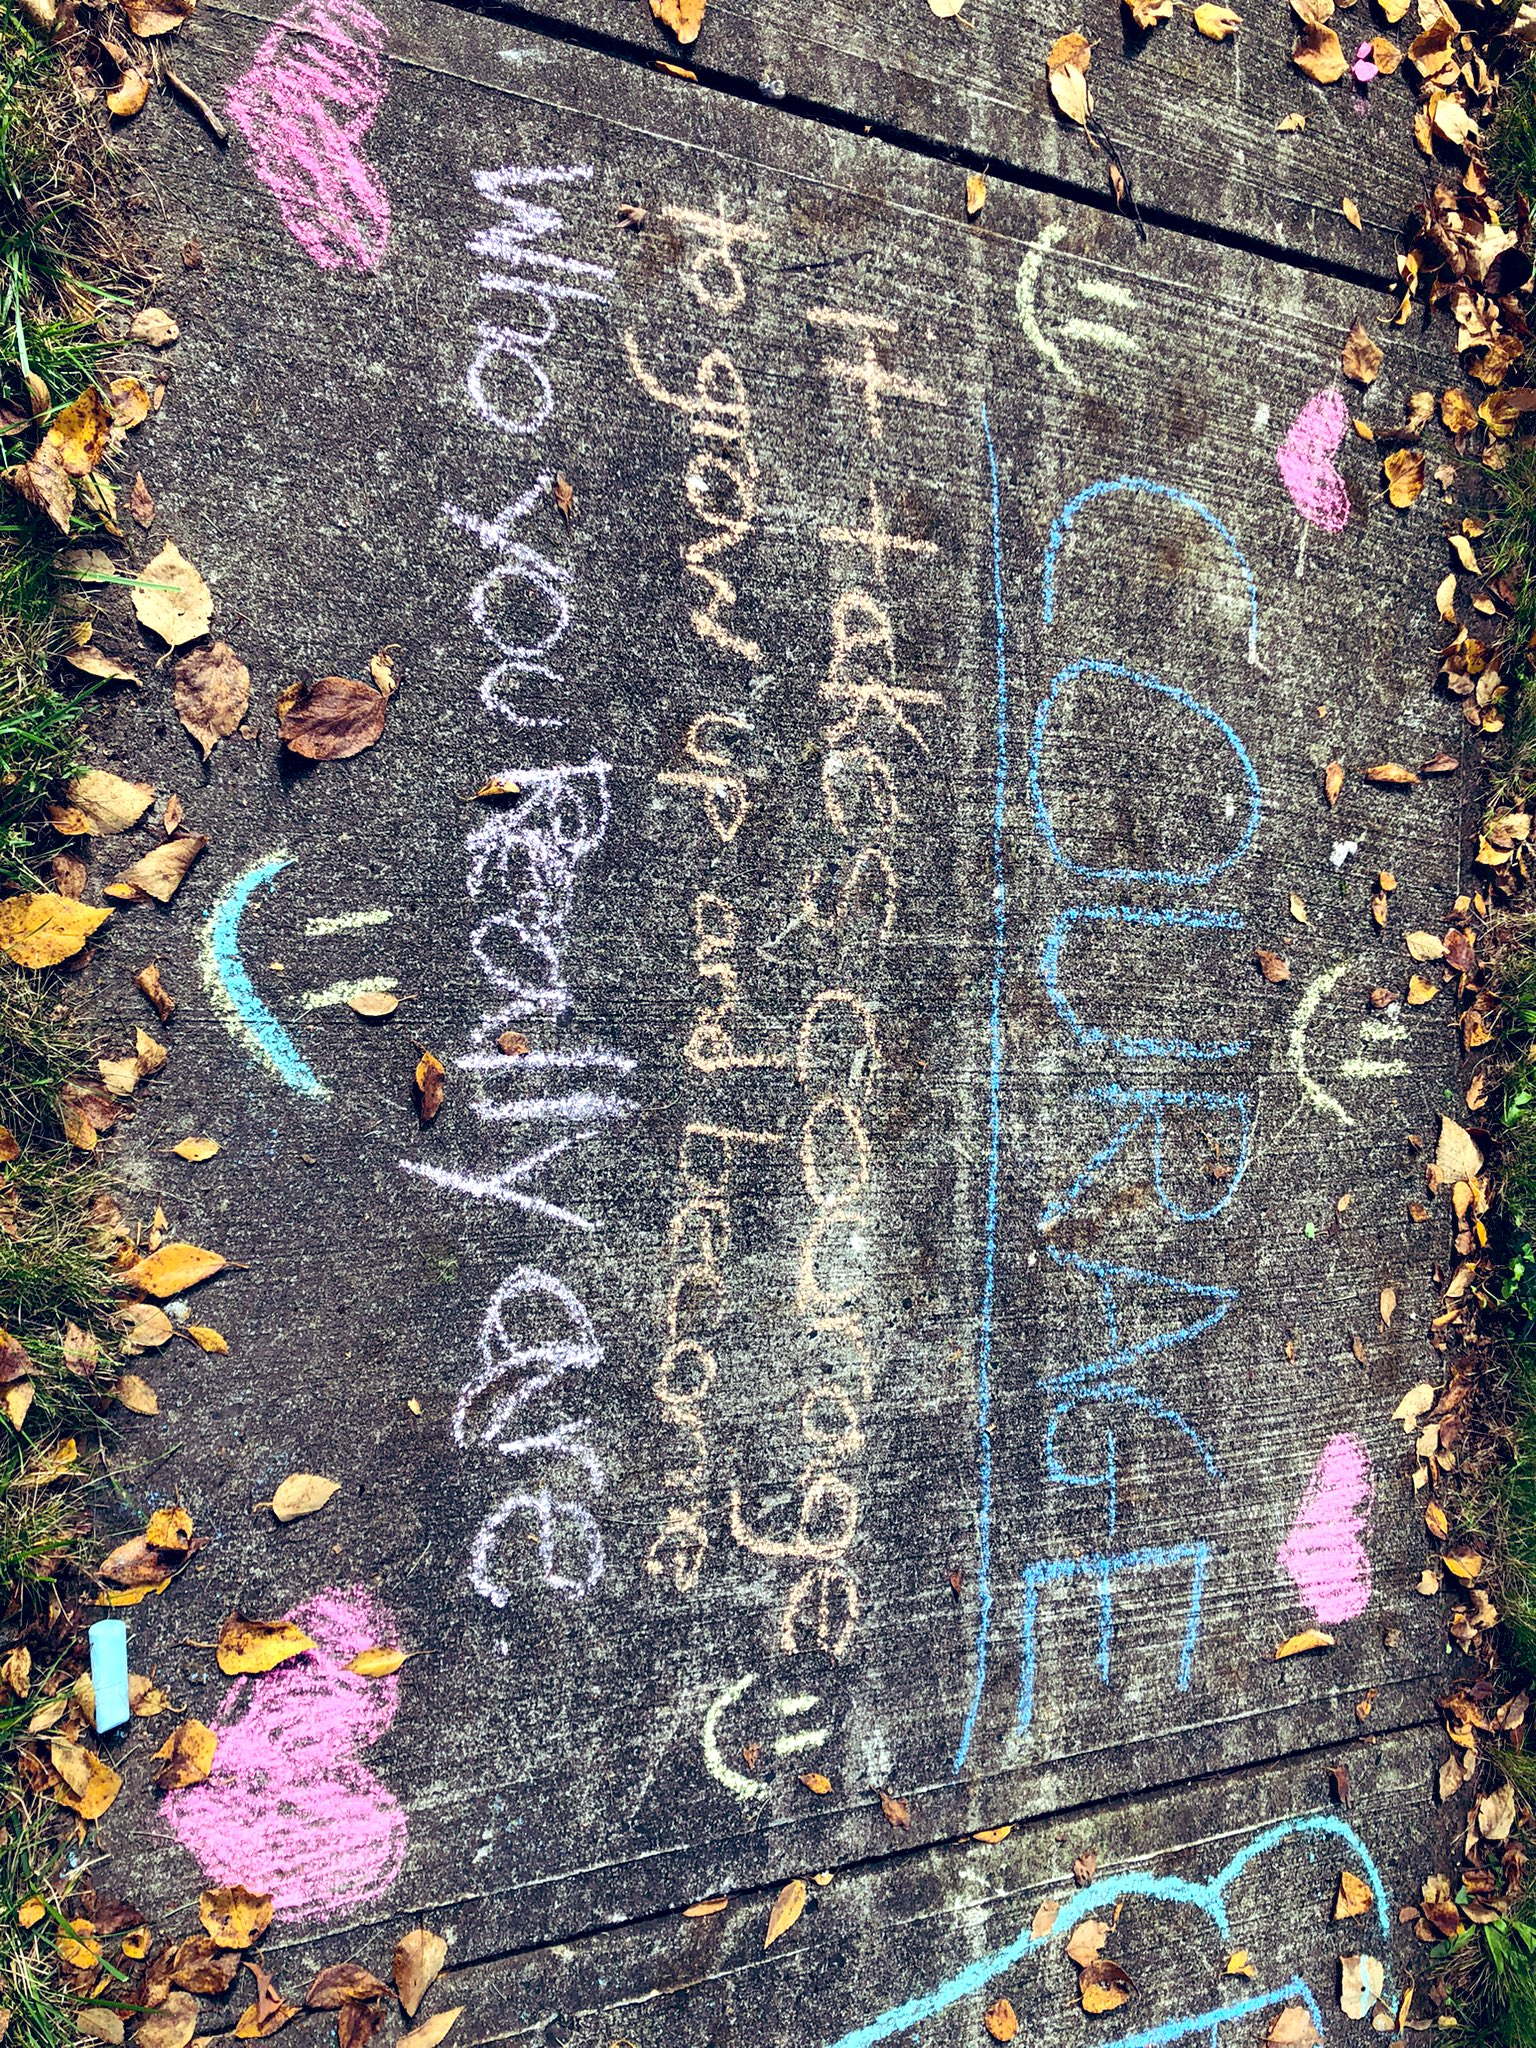 COURAGE
It takes Courage
to grow up and become
Who you Really are